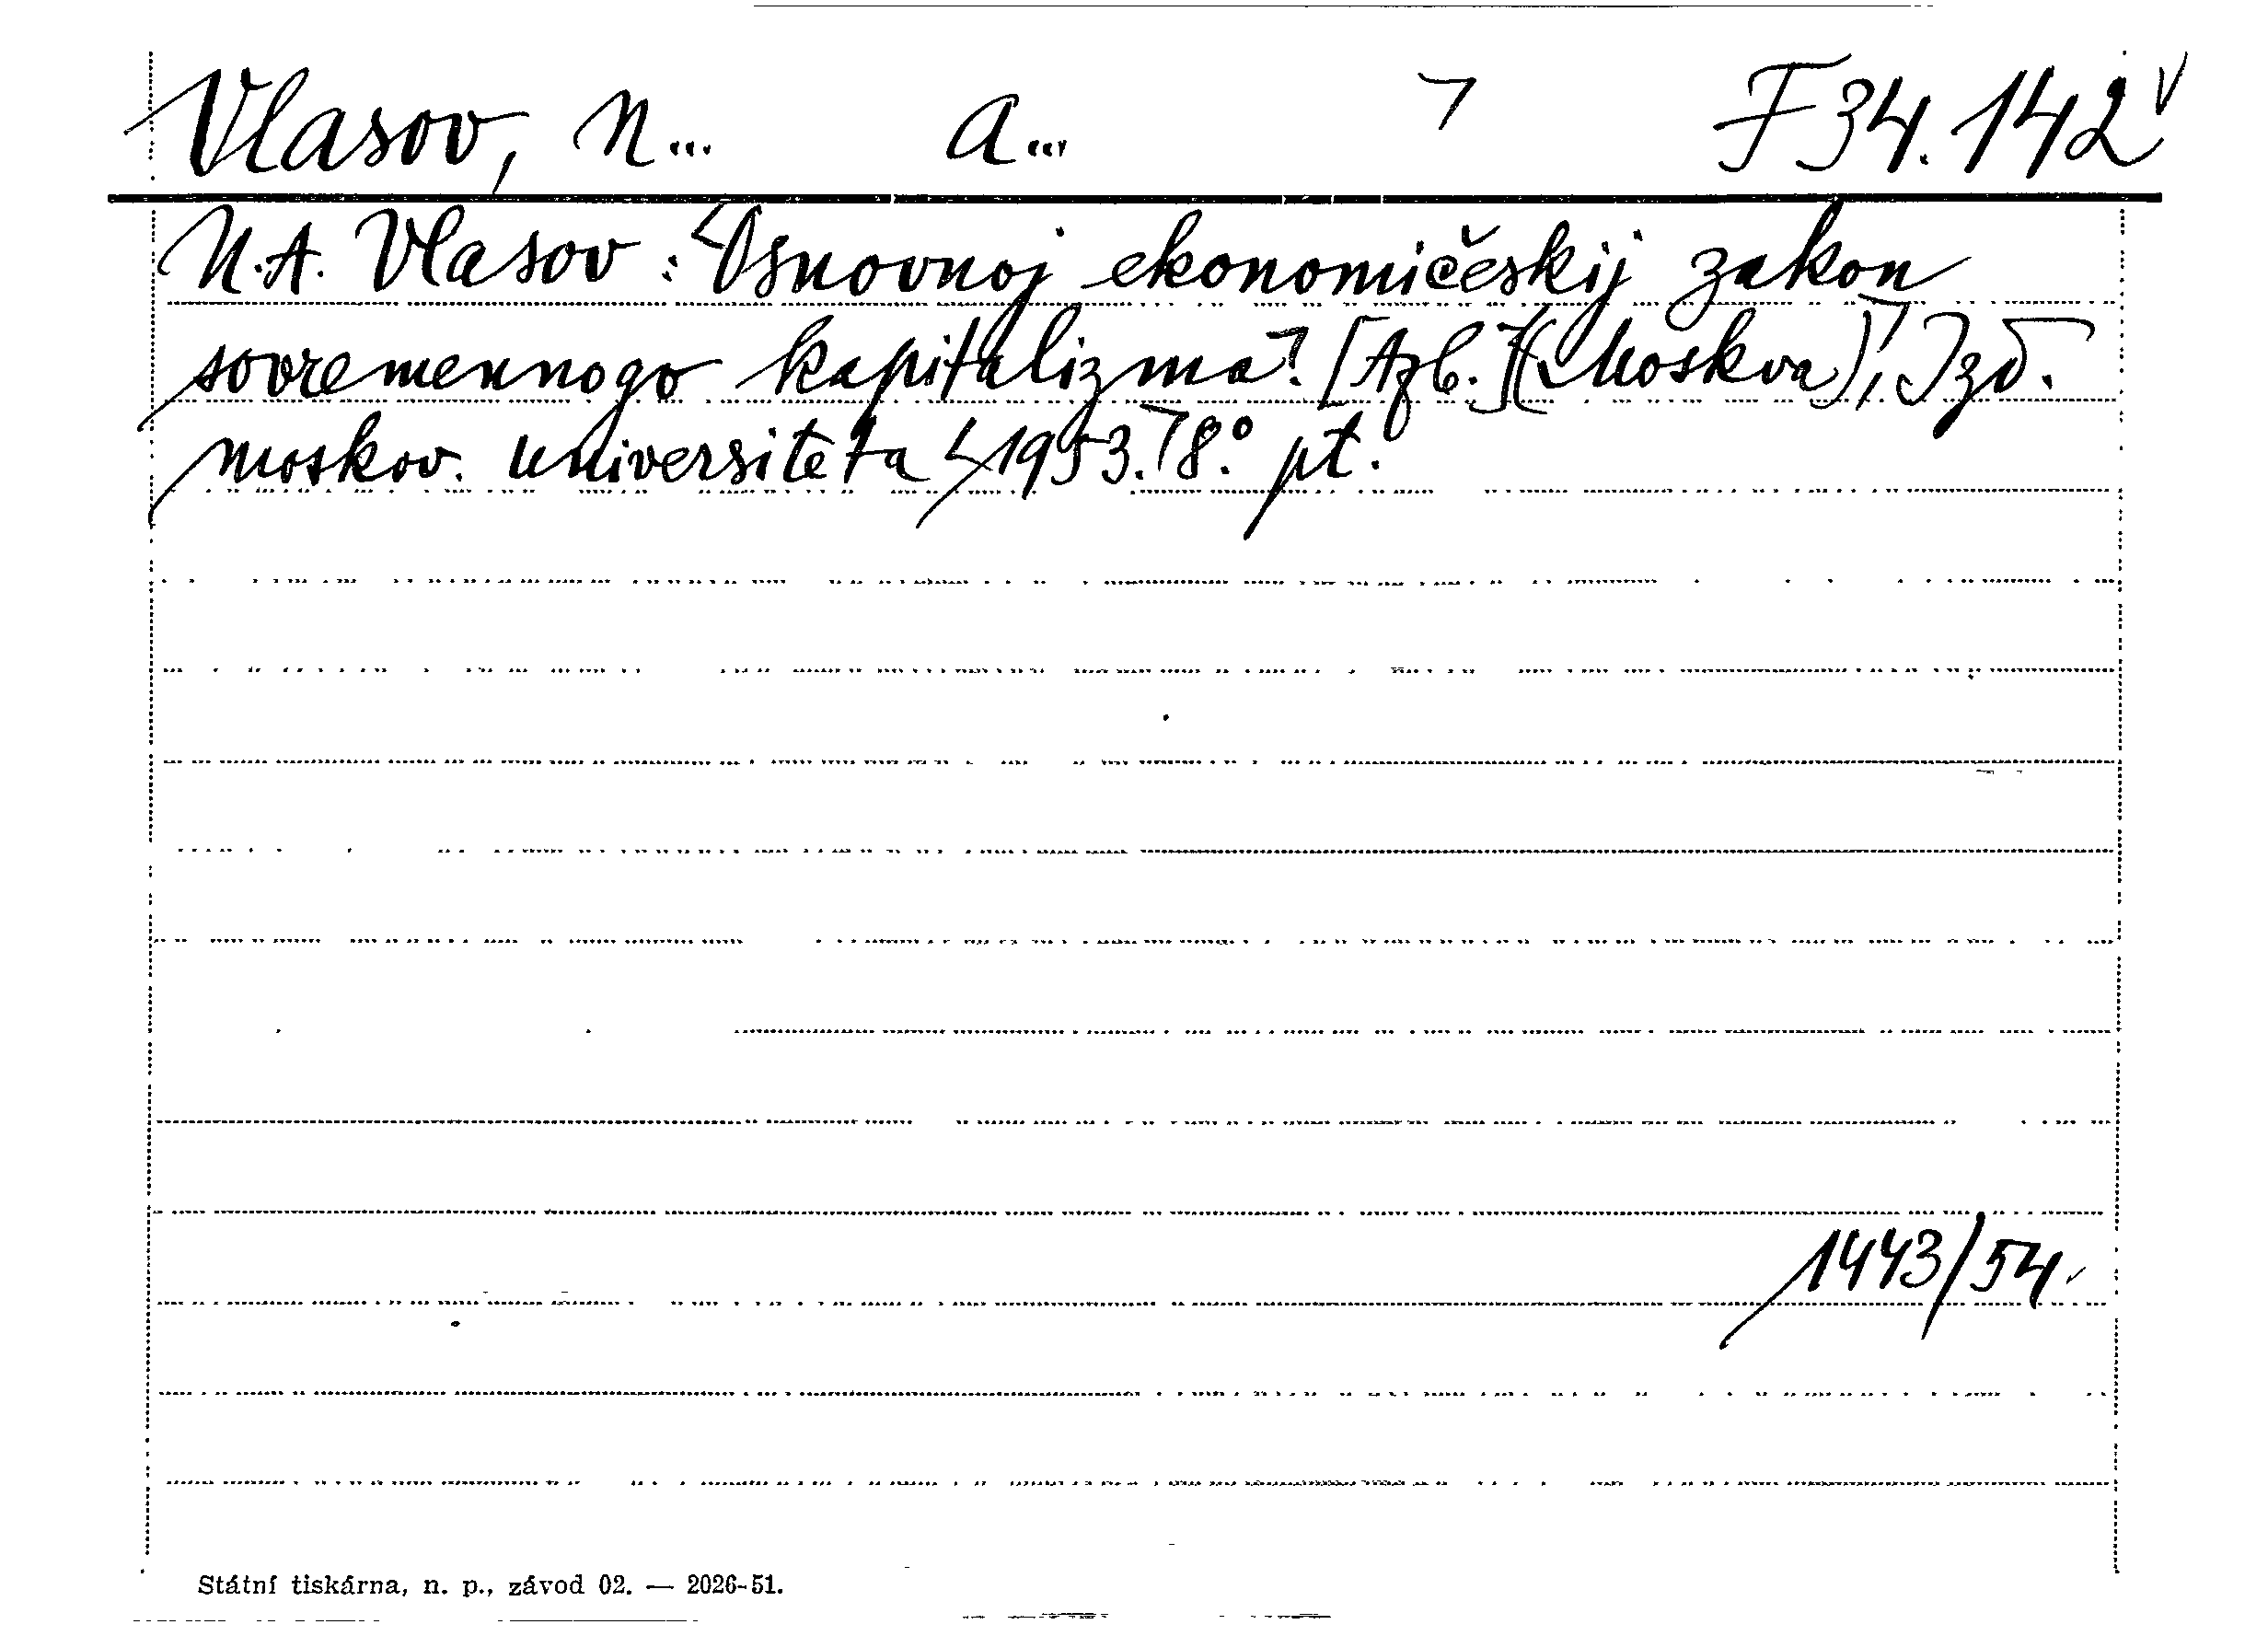 Vlasov, N... A... F 34.142
N.A. Vlasov: Osnovnoj ekonomičeskij zakon
sovremennogo kapitalizma. [Azb.] (Moskva), Izd.
moskov. universiteta 1953. 8° pt.
1443/54
Státní tiskárna, n. p., závod 02. — 2026-51.